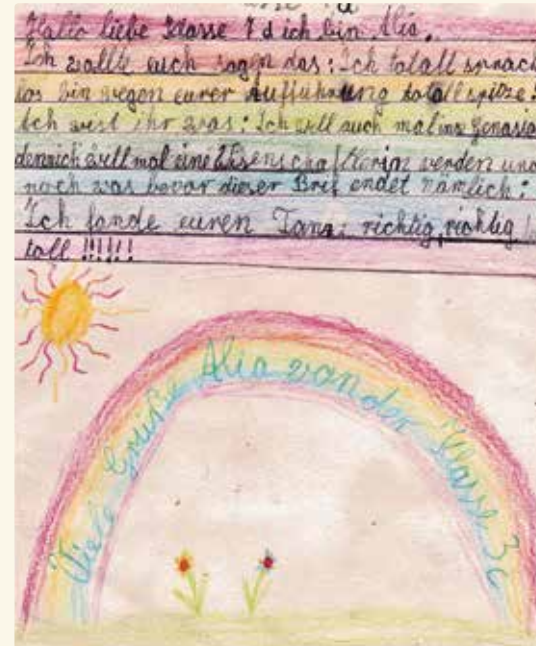 Hallo liebe Klasse 7 d ich bin Alia.
Ich wollte euch sagen das: Ich totall sprach
los bin wegen eurer Aufführung totall spitze!
Ich west ihr was: Ich will auch mal ins Genasia
denn ich will mal eine Wisenschaftlerin werden und
noch was bevor dieser Brif endet nämlich:
Ich fande euren Tanz richtig, richtig
toll !!!!!!
Viele Grüße Alia von der Klasse 3c